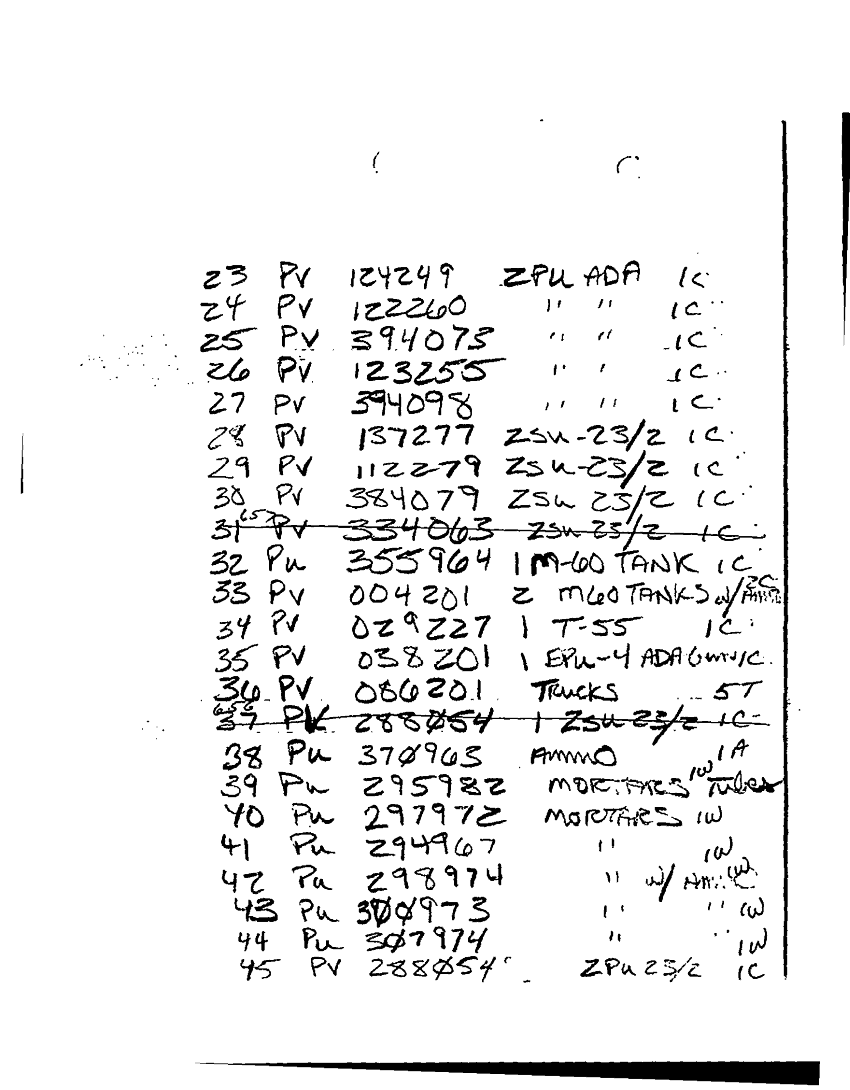 23 PV 124249 ZPU ADA 1C
24 PV 122260 " " 1C
25 PV 394073 " " 1C
26 PV 123255 " " 1C
27 PV 394098 " " 1C
28 PV 137277 ZSU-23/2 1C
29 PV 112279 ZSU-23/2 1C
30 PV 384079 ZSU 23/2 1C
31 PV 334063 ZSU 23/2 1C
32 Pu 355964 1 M-60 TANK 1C
33 PV 004201 2 M60 TANKS w/ 2C
34 PV 029227 1 T-55 1C
35 PV 038201 1 EPU-4 ADA 1C
36 PV 086201 TRUCKS 5T
37 PV 288Ø54 1 ZSU 23/2 1C
38 Pu 37Ø963 AMMO 1A
39 Pu 295982 MORTARS 1W Tubes
40 Pu 297972 MORTARS 1W
41 Pu 294967 " 1W
42 Pu 298974 " w/
43 Pu 3ØØ973 " " 1W
44 Pu 3Ø7974 " " 1W
45 PV 288Ø54 ZPU 23/2 1C